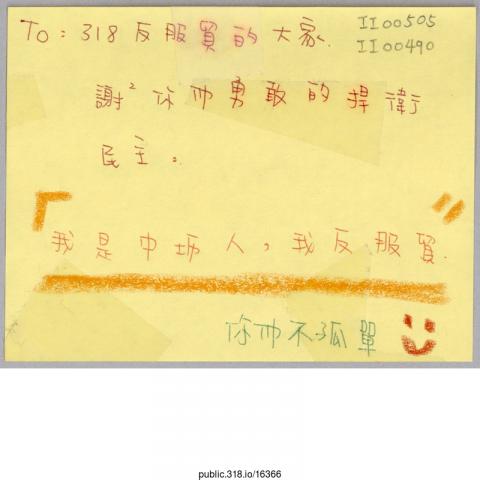 To：318反服貿的大家.
II00505
II00490
謝² 你们勇敢的捍衛
民主。
「我是中坜人，我反服貿.〃
你们不孤單
public.318.io/16366